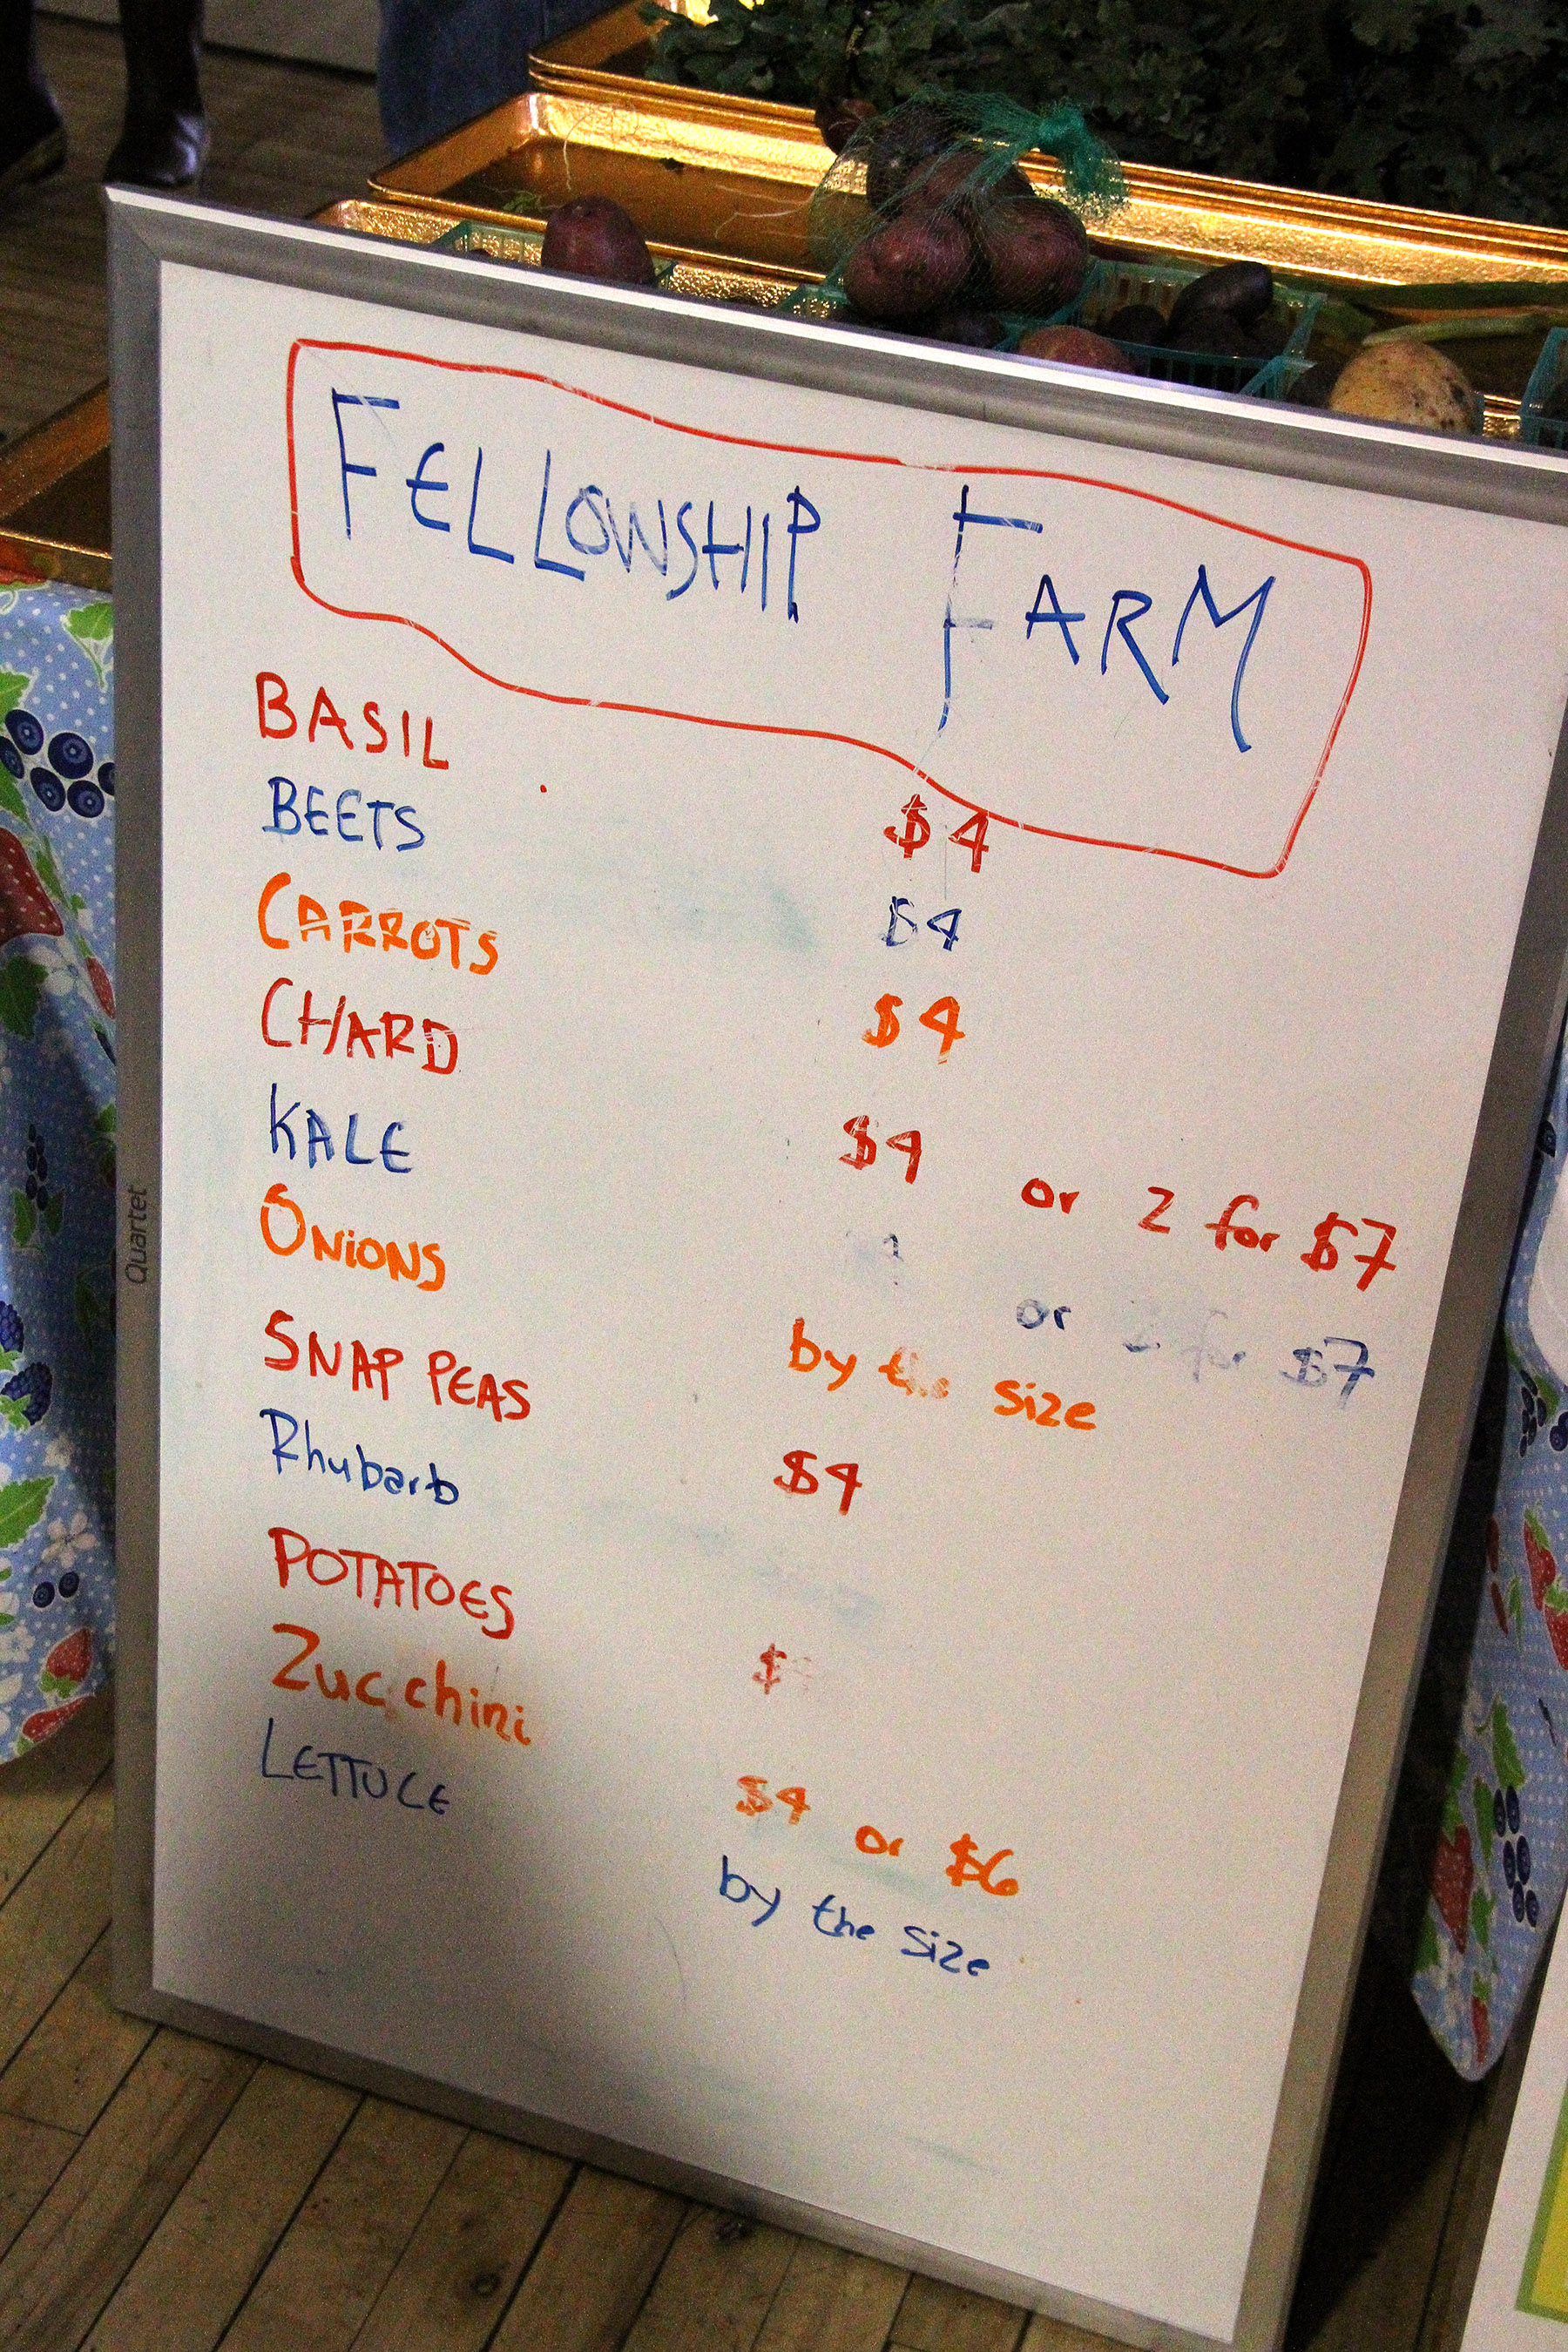 FELLOWSHIP FARM
BASIL $4
BEETS $4
CARROTS $4
CHARD $4 or 2 for $7
KALE or 2 for $7
ONIONS by the size
SNAP PEAS $4
Rhubarb
POTATOES $
Zucchini $4 or $6
LETTUCE by the size
Quartet